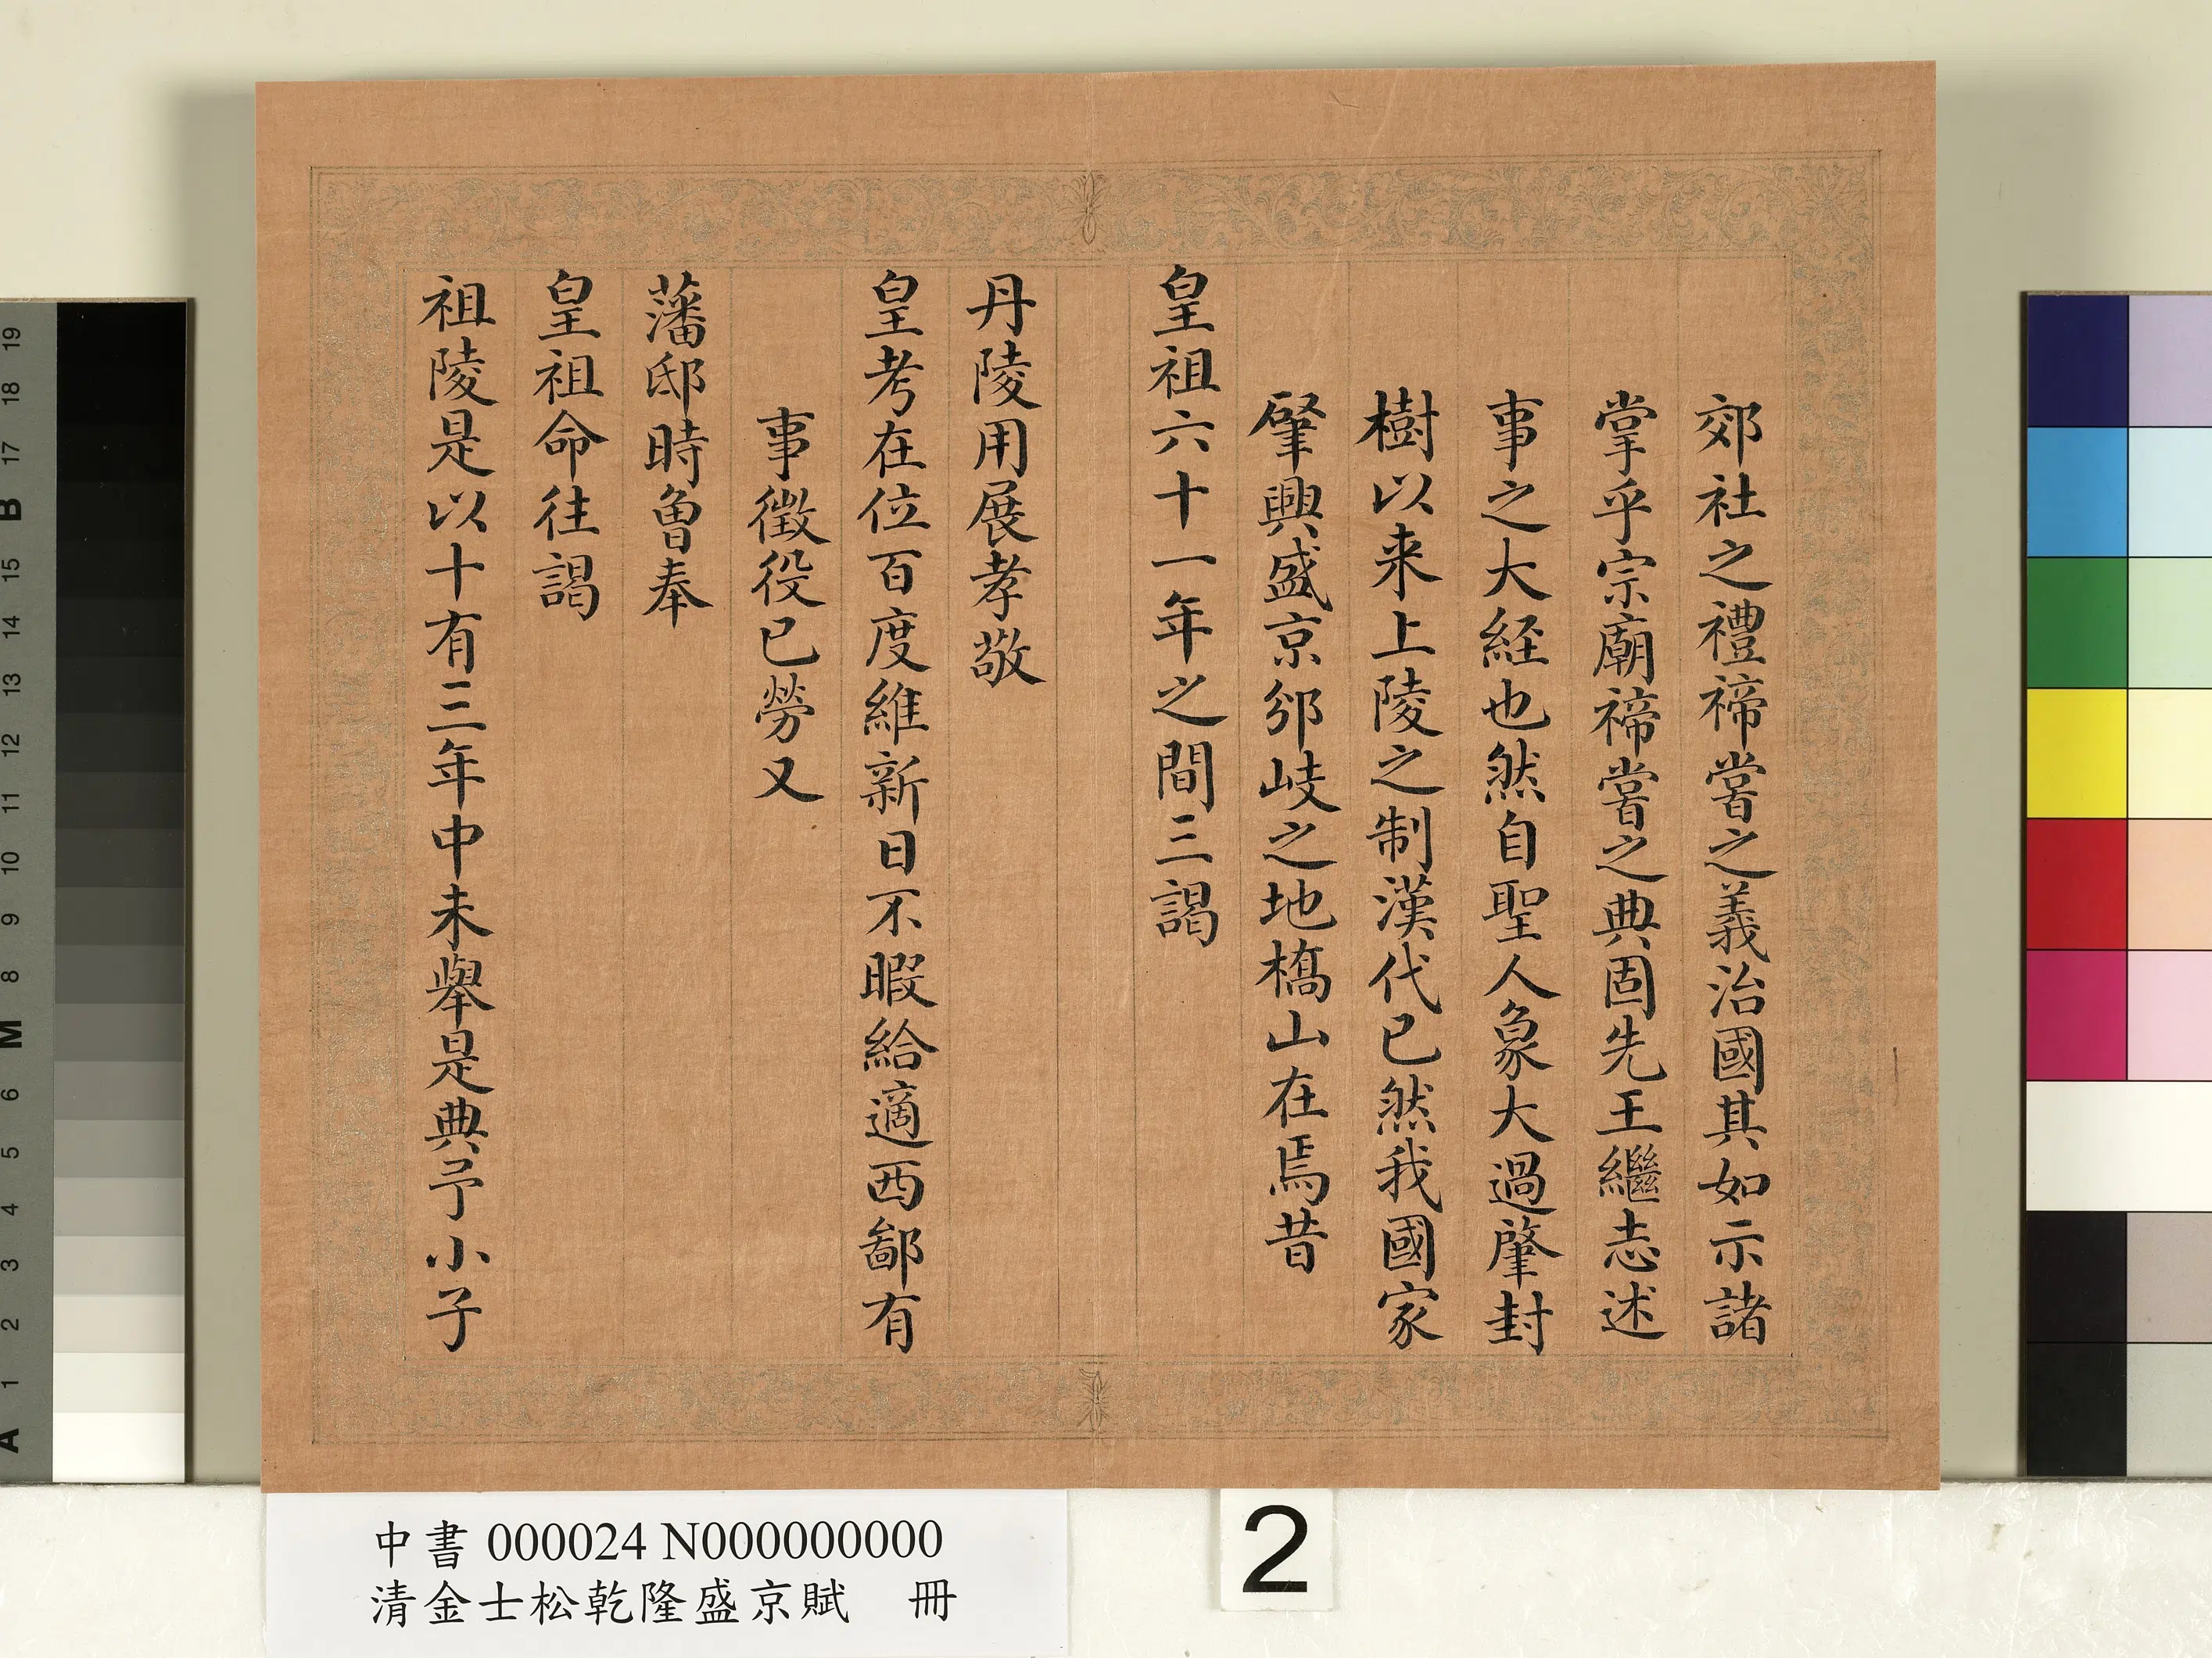 郊社之禮禘嘗之義治國其如示諸
掌乎宗廟禘嘗之典固先王繼志述
事之大経也然自聖人象大過肇封
樹以来上陵之制漢代已然我國家
肈興盛京邠岐之地橋山在焉昔
皇祖六十一年之間三謁
丹陵用展孝敬
皇考在位百度維新日不暇給適西鄙有
事徵役已勞又
藩邸時曾奉
皇祖命往謁
祖陵是以十有三年中未舉是典予小子
中書 000024 N000000000
清金士松乾隆盛京賦 冊
2
19
18
17
B
15
14
13
12
11
10
9
8
M
6
5
4
3
2
1
A